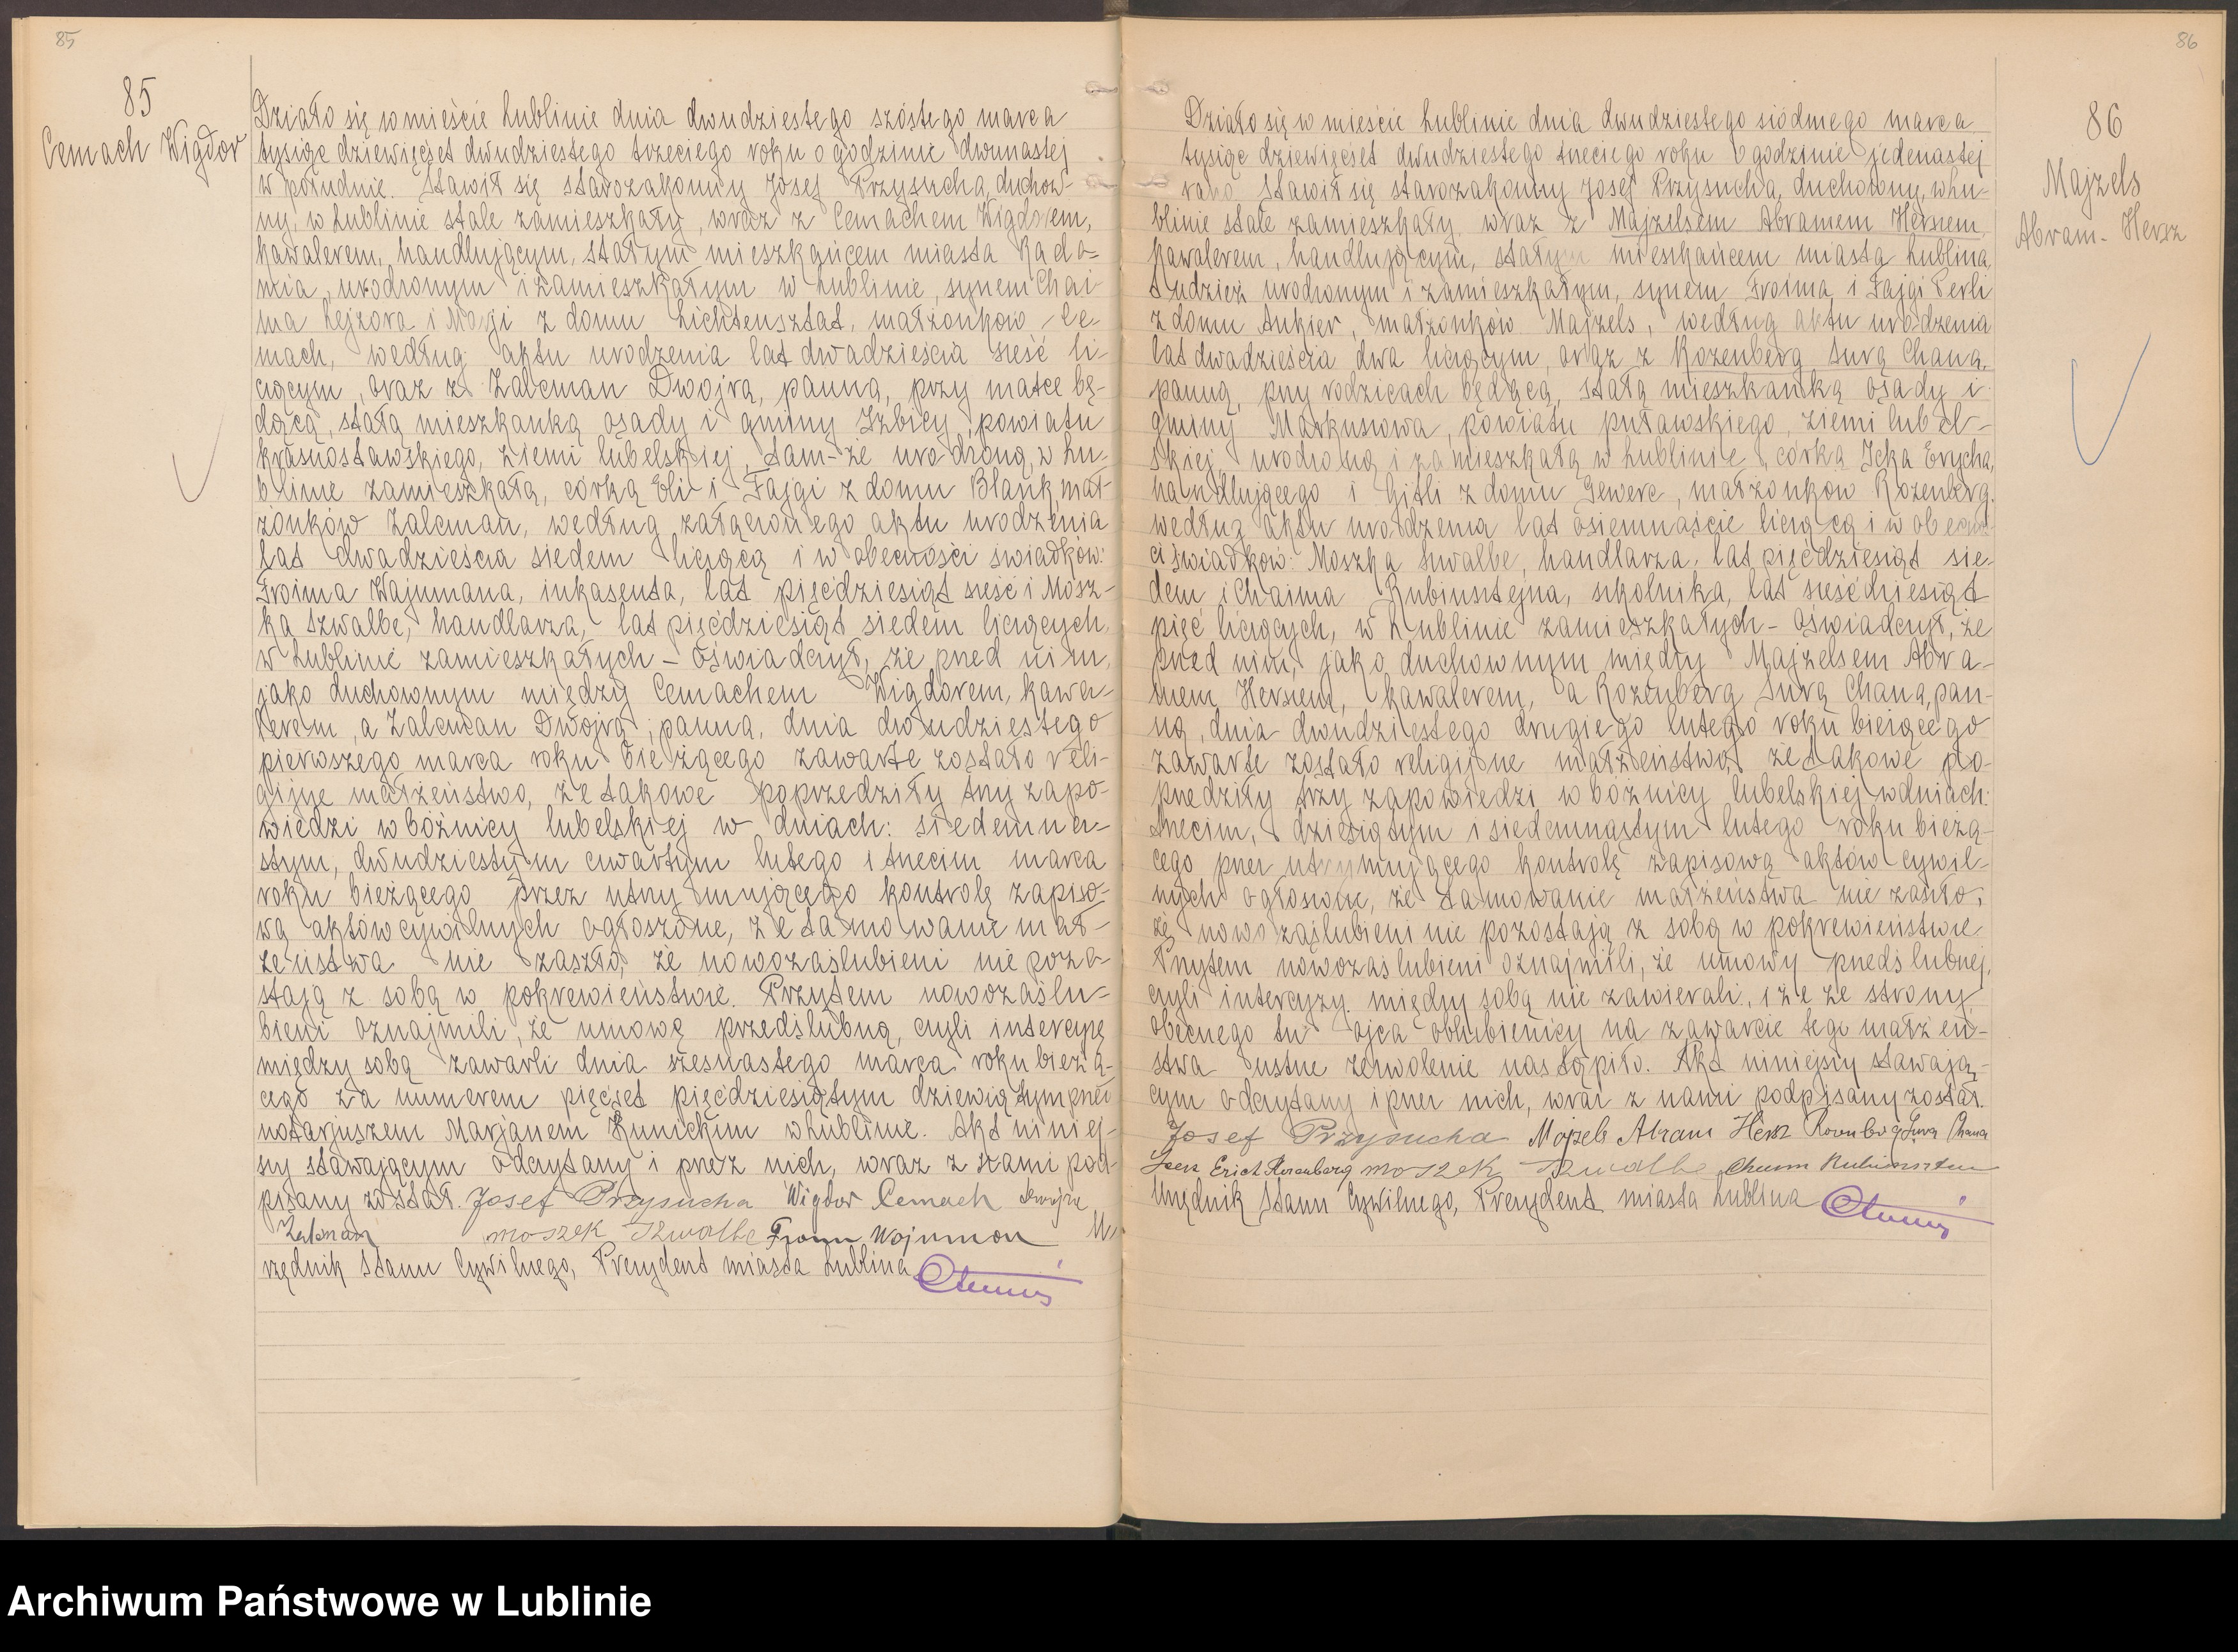 85
85
Cemach Wigdor
Działo się w mieście Lublinie dnia dwudziestego szóstego marca
tysiąc dziewięćset dwudziestego trzeciego roku o godzinie dwunastej
w południe. Stawił się starozakonny Josef Przysucha, duchow-
ny, w Lublinie stale zamieszkały, wraz z Cemachem Wigdorem,
kawalerem, handlującym, stałym mieszkańcem miasta Rado-
mia, urodzonym i zamieszkałym w Lublinie, synem Chai-
ma Lejzora i z domu Lichtensztat, małżonków Ce-
mach, według aktu urodzenia lat dwadzieścia sześć li-
czącym, oraz z Zalcman Dwojrą, panną, przy matce bę-
dącą, stałą mieszkanką osady i gminy Izbicy, powiatu
krasnostawskiego, ziemi lubelskiej, tam-że urodzoną, w Lu-
blinie zamieszkałą, córką Eli i Fajgi z domu Blank, mał-
żonków Zalcman, według załączonego aktu urodzenia
lat dwadzieścia siedem liczącą i w obecności świadków:
Froima Wajnmana, inkasenta, lat pięćdziesiąt sześć i Mosz-
ka Szwalbe, handlarza, lat pięćdziesiąt siedem liczących,
w Lublinie zamieszkałych – oświadczył, że przed nim,
jako duchownym między Cemachem Wigdorem, kawa-
lerem, a Zalcman Dwojrą, panną, dnia dwudziestego
pierwszego marca roku bieżącego zawarte zostało reli-
gijne małżeństwo, że takowe poprzedziły trzy zapo-
wiedzi w bóżnicy lubelskiej w dniach: siedemna-
stym, dwudziestym czwartym lutego i trzecim marca
roku bieżącego przez utrzymującego kontrolę zapiso-
wą aktów cywilnych ogłoszone, że tamowanie mał-
żeństwa nie zaszło, że nowozaślubieni nie pozo-
stają z sobą w pokrewieństwie. Przytem nowozaślu-
bieni oznajmili, że umowę przedślubną, czyli intercyzę
między sobą zawarli dnia szesnastego marca roku bieżą-
cego za numerem pięćset pięćdziesiątym dziewiątym przed
notarjuszem Marjanem Kunickim w Lublinie. Akt niniej-
szy stawającym odczytany i przez nich, wraz z nami pod-
pisany został. Josef Przysucha Wigdor Cemach Dwojra
Zalcman moszek Szwalbe Froim Wajnman U-
rzędnik Stanu Cywilnego, Prezydent miasta Lublina
86
86
Majzels
Abram-Hersz
Działo się w mieście Lublinie dnia dwudziestego siódmego marca
tysiąc dziewięćset dwudziestego trzeciego roku o godzinie jedenastej
rano Stawił się starozakonny Josef Przysucha, duchowny, w Lu-
blinie stale zamieszkały, wraz z Majzelsem Abramem Herszem,
kawalerem, handlującym, stałym mieszkańcem miasta Lublina,
tudzież urodzonym i zamieszkałym, synem Froima i Fajgi Perli
z domu Ankier, małżonków Majzels, według aktu urodzenia
lat dwadzieścia dwa liczącym, oraz z Rozenberg Surą Chaną,
panną, przy rodzicach będącą, stałą mieszkanką osady i
gminy Markuszowa, powiatu puławskiego, ziemi lubel-
skiej, urodzoną i zamieszkałą w Lublinie, córką Icka Erycha,
handlującego i Gitli z domu Gewerc, małżonków Rozenberg,
według aktu urodzenia lat osiemnaście liczącą i w obecnoś-
ci świadków: Moszka Szwalbe, handlarza, lat pięćdziesiąt sie-
dem i Chaima Rubinsztejna, szkolnika, lat sześćdziesiąt
pięć liczących, w Lublinie zamieszkałych – oświadczył, że
przed nim, jako duchownym między Majzelsem Abra-
mem Herszem, kawalerem, a Rozenberg Surą Chaną, pan-
ną, dnia dwudziestego drugiego lutego roku bieżącego
zawarte zostało religijne małżeństwo, że takowe po-
przedziły trzy zapowiedzi w bóżnicy lubelskiej w dniach:
trzecim, dziesiątym i siedemnastym lutego roku bieżą-
cego przez utrzymującego kontrolę zapisową aktów cywil-
nych ogłoszone, że tamowanie małżeństwa nie zaszło,
że nowozaślubieni nie pozostają z sobą w pokrewieństwie.
Przytem nowozaślubieni oznajmili, że umowy przedślubnej,
czyli intercyzy między sobą nie zawierali, i że ze strony
obecnego tu ojca oblubienicy na zawarcie tego małżeń-
stwa ustne zezwolenie nastąpiło. Akt niniejszy stawają-
cym odczytany i przez nich, wraz z nami podpisany został.
Josef Przysucha Majzels Abram Hersz Rozenberg Sura Chana
Icek Erich Rozenberg moszek Szwalbe Chaim Rubinsztein
Urzędnik Stanu Cywilnego, Prezydent miasta Lublina
Archiwum Państwowe w Lublinie